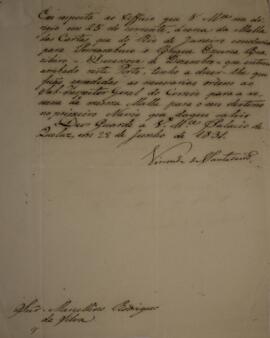 Em resposta ao Officio que V. M.ce me di
rigio em 25 do corrente, acerca da Malla
das Cartas que do Rio de Janeiro conduzia
para Pernambuco o Brigue Escuna Bra
zileiro - Dezanove de Dezembro - que entrou
arribado neste Porto, tenho a dizer-lhe que
ficão expedidas as necessarias ordens ao
Sub-Inspector Geral do Correio para a re
messa da mesma Malla para o seu destino
no primeiro Navio que daqui sahir
Deos Guarde a V. M.ce Palacio de
Queluz, em 28 de Junho de 1831.
Visconde de Santarem
Snr. Marcellino Rodrigues
da Silva